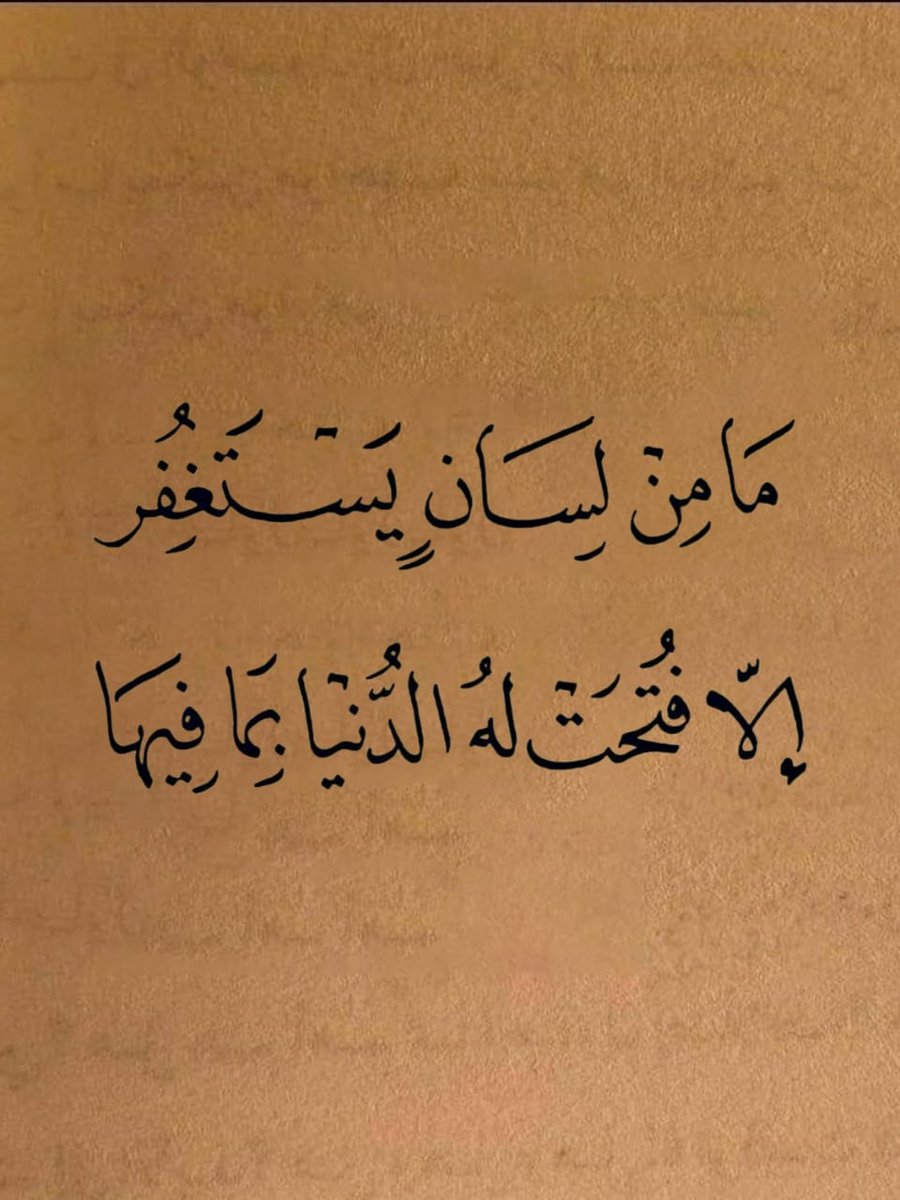 مَا مِنْ لِسَانٍ يَسْتَغْفِرُ
إلّا فُتُحَتْ لهُ الدُّنْيَا بِمَا فِيهَا